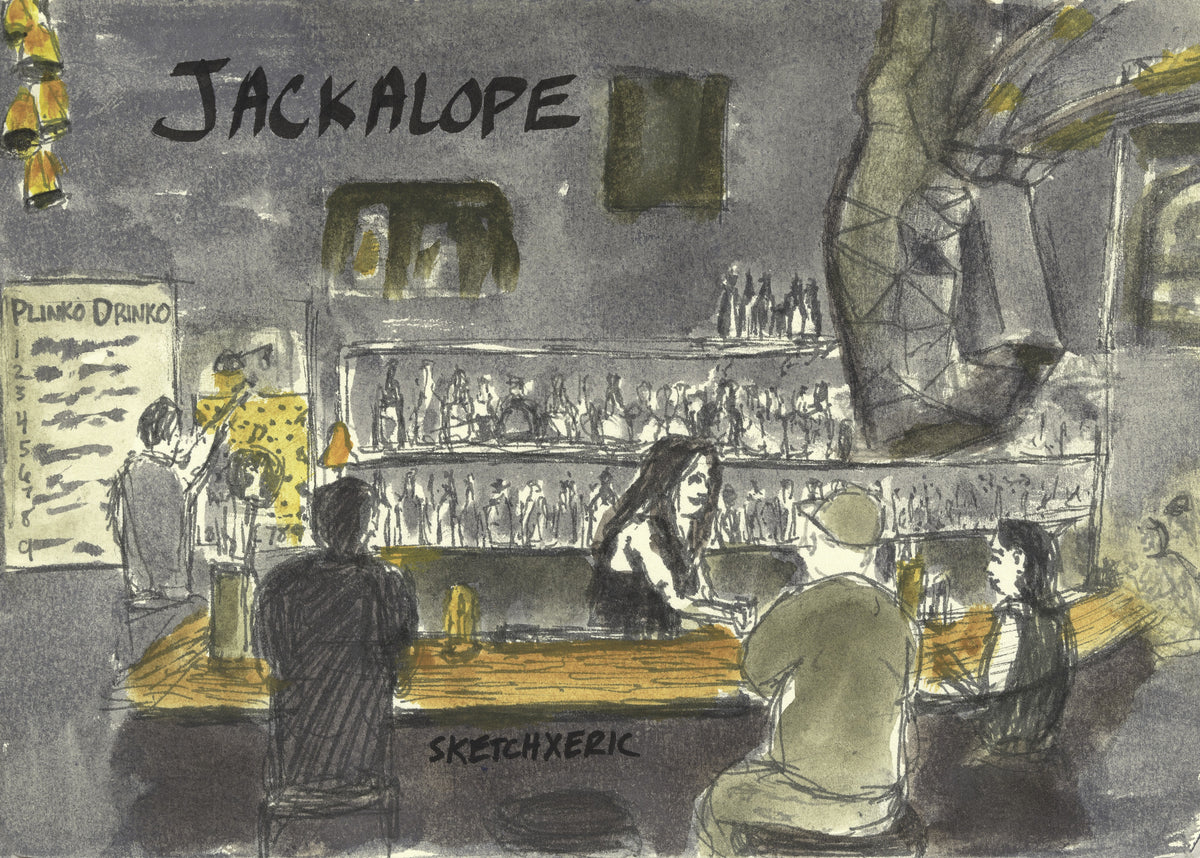 JACKALOPE
PLINKO DRINKO
1
2
3
4
5
6
7
8
9
SKETCHXERIC